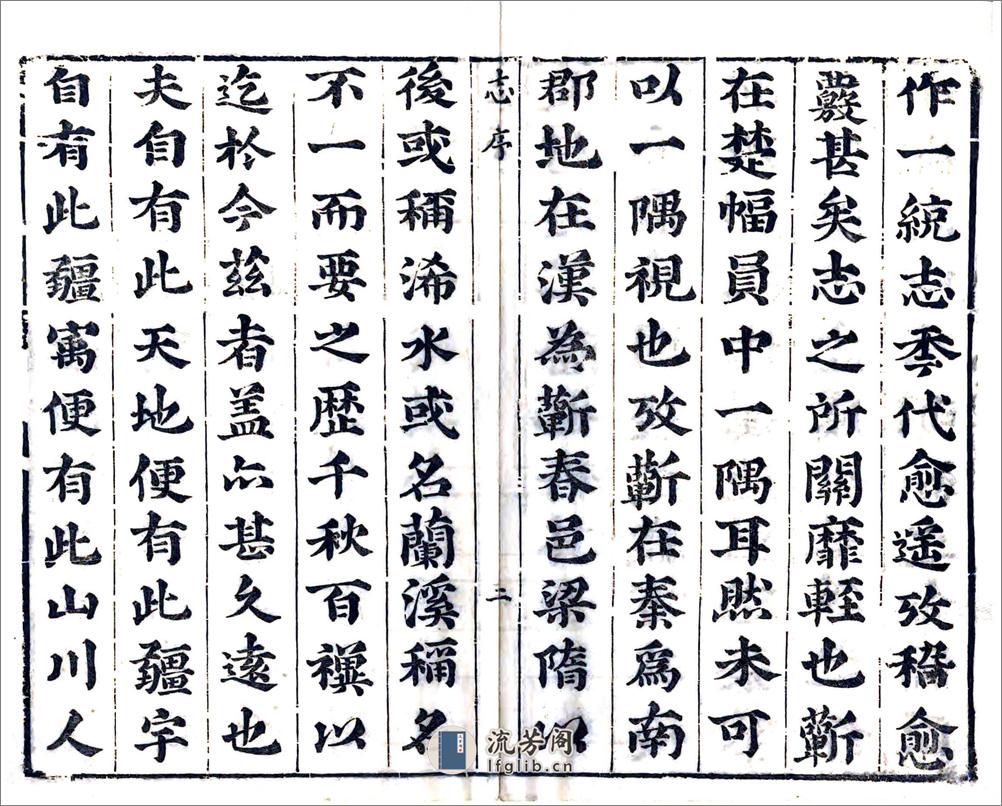 作一統志秊代愈遥攷稽愈
覈甚矣志之所關靡輕也蘄
在楚幅員中一隅耳然未可
以一隅視也攷蘄在秦爲南
郡地在漢為蘄春邑梁隋以
志序 三
後或稱浠水或名蘭溪稱名
不一而要之歷千秋百禩以
迄於今茲者盖亦甚久遠也
夫自有此天地便有此疆宇
自有此疆寓便有此山川人
流芳阁
lfglib.cn